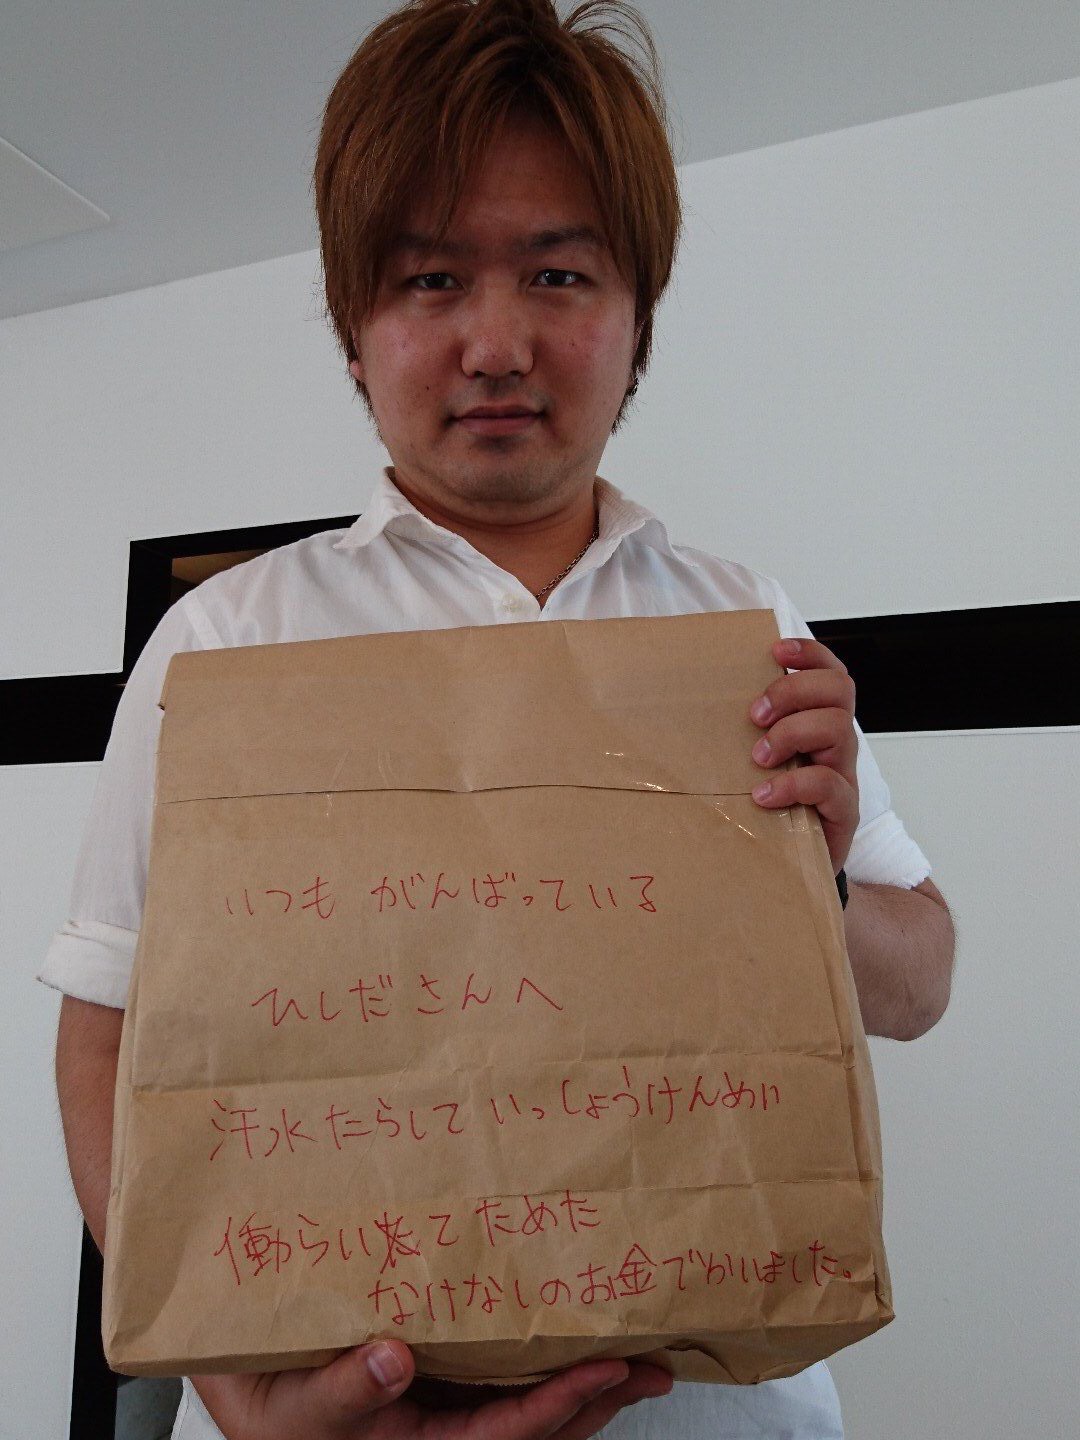 いつも がんばっている
ひしださんへ
汗水たらして いっしょうけんめい
働らいて ためた
なけなしのお金でかいました。